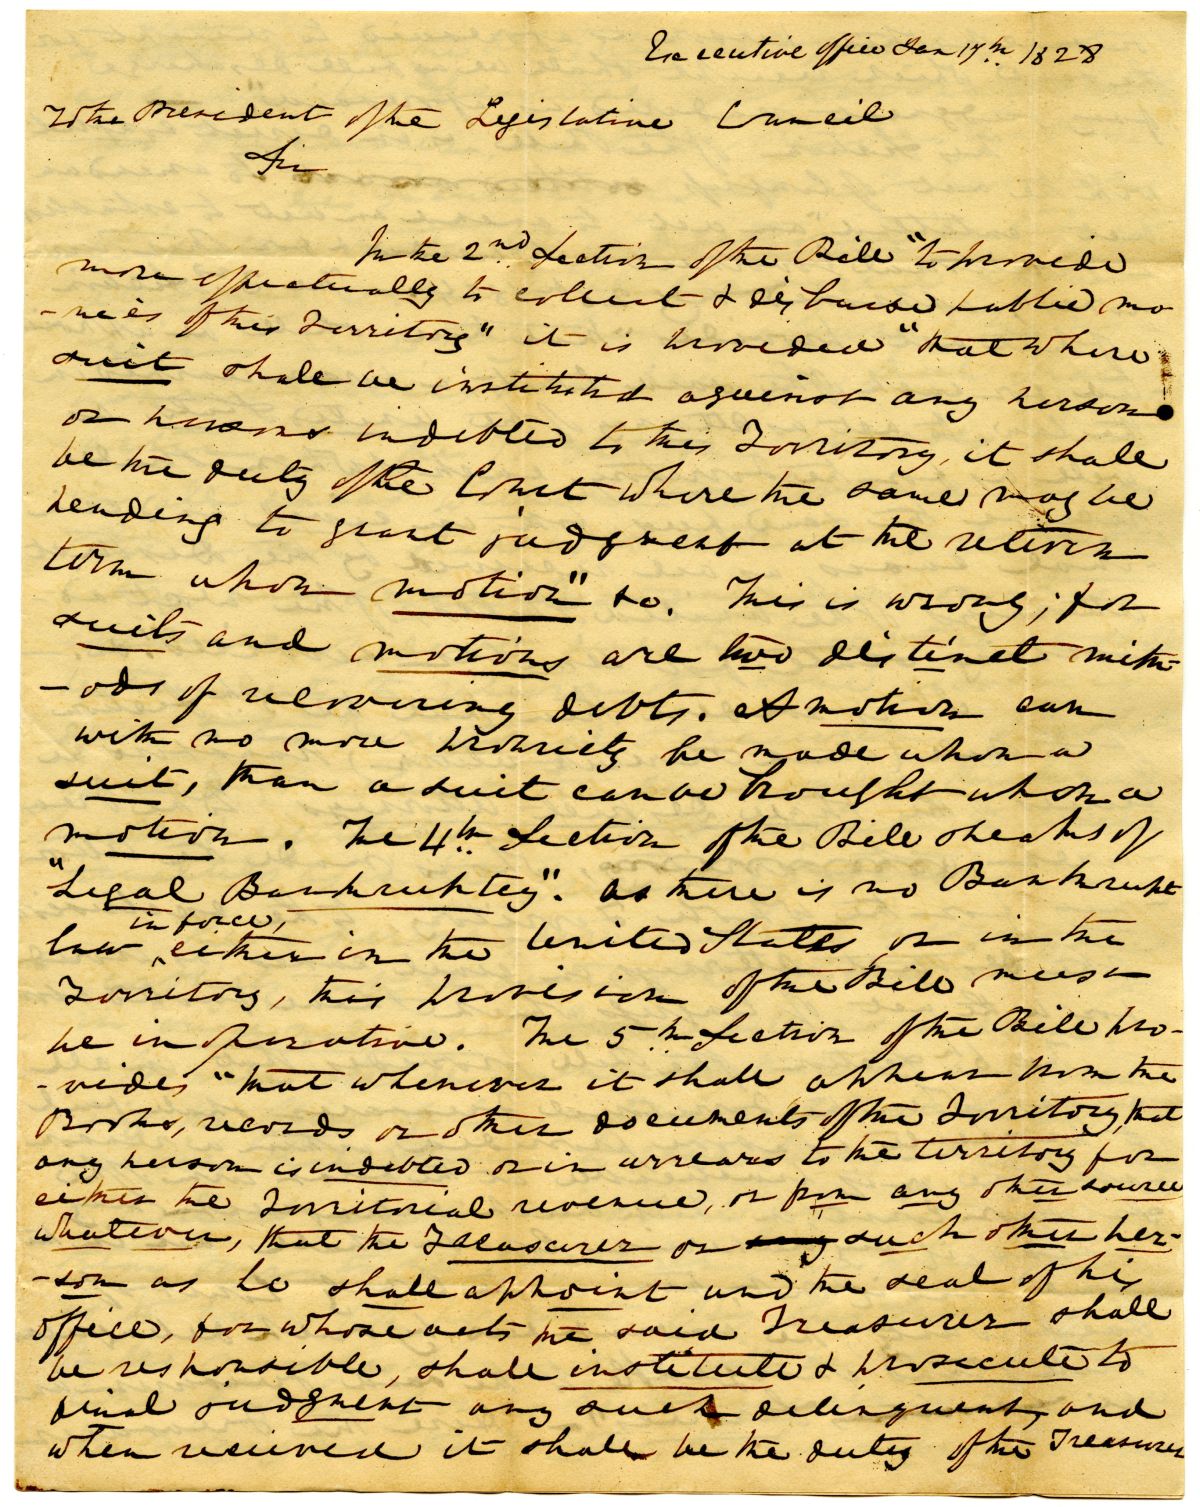 Executive office Jan 17th. 1828
To the President of the Legislative Council
Sir
In the 2nd. Section of the Bill "to provide
more effectually to collect & disburse public mo-
-nies of this Territory" it is provided "that where
suit shall be instituted against any person
or persons indebted to this Territory, it shall
be the duty of the Court where the same may be
pending to grant judgment at the return
term upon motion" &c. This is wrong; for
suits and motions are two distinct meth-
-ods of recovering debts. A motion can
with no more propriety be made upon a
suit, than a suit can be brought upon a
motion. The 4th. Section of the Bill speaks of
"Legal Bankruptcy". As there is no Bankrupt
in force,
law either in the United States, or in the
Territory, this provision of the Bill must
be inoperative. The 5th Section of the Bill pro-
-vides "that whenever it shall appear from the
Books, records or other documents of the Territory, that
any person is indebted or in arrears to the territory for
either the Territorial revenue, or from any other source
whatever, that the Treasurer or any such other per-
-son as he shall appoint und the seal of his
office, for whose acts the said Treasurer shall
be responsible, shall institute & prosecute to
final judgment any such delinquent, and
when recieved it shall be the duty of the Treasurer